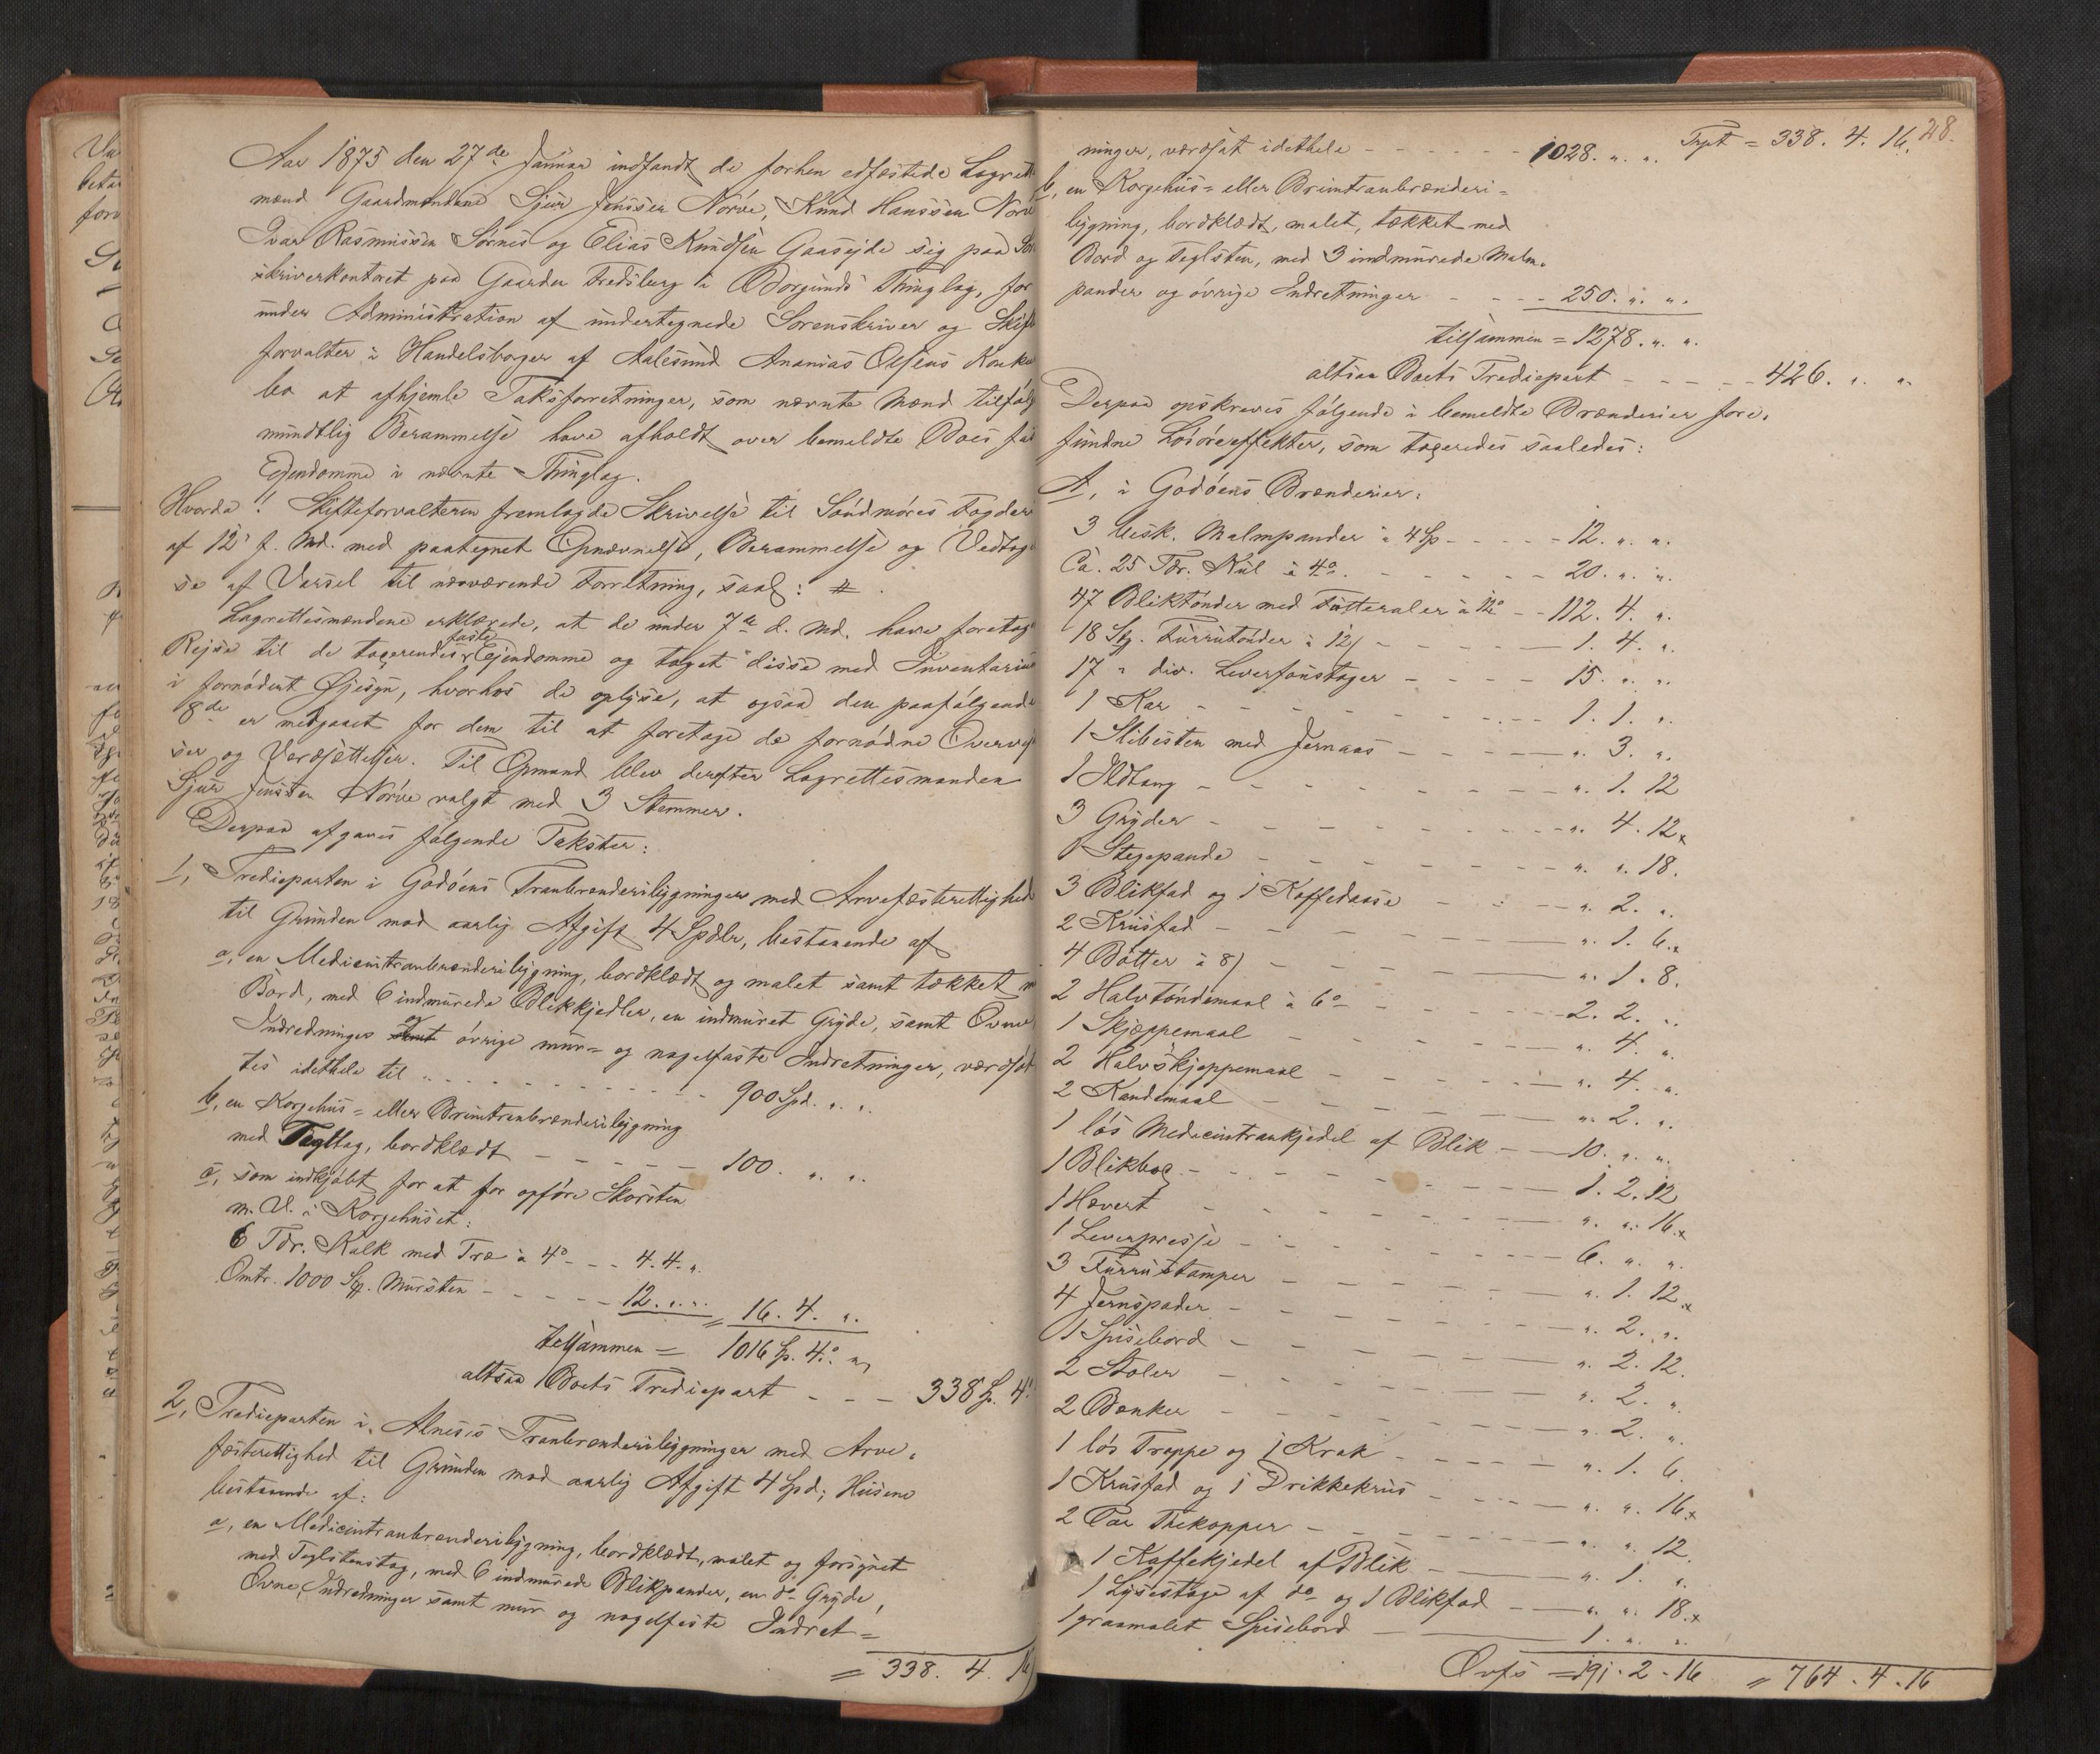 Aar 1875 den 27de Januar indfandt de forhen edfæstede Lagrett
mænd Gaardmændene Sjur Jenssen Nørve, Knud Hanssen Nørv
Ivar Rasmussen Sørnes og Elias Knudsen Gaasejde sig paa Sor
skriverkontoret paa Gaarden Fredsberg i Borgunds Thinglag, for
under Administration af undertegnede Sorenskriver og Skift
forvalter i Handelsborger af Aalesund Ananias Olsens Konku
bo at afhjemle Taksforretninger, som nævnte Mænd tilfølg
mundtlig Berammelse have afholdt over bemeldte Boes fas
Ejendomme i nævnte Thinglag.
Hvorda! Skifteforvalteren fremlagde Skrivelse til Søndmøres Fogder
af 12' f. Md. med paategnet Opnævnelse, Berammelse og Vedtag
se af Varsel til nærværende Forretning, saal: #
Lagrettesmændene erklærede, at de under 7de d. Md. have foretag
Rejse til de taxerendes faste Ejendomme og taget disse med Inventarie
i fornødent Øjesyn, hvorhos de oplyse, at ogsaa den paafølgende
8de er medgaaet for dem til at foretage de fornødne Overvej
ser og Værdsættelser. Til Opmand blev derefter Lagrettesmanden
Sjur Jenssen Nørve valgt med 3 Stemmer.
Derpaa afgaves følgende Takster:
1, Tredieparten i Godøens Tranbrænderibygninger med Arvefæsterettighed
til Grunden mod aarlig Afgift 4 Spdlr, bestaaende af
a, en Medicintranbrænderibygning, bordklædt og malet samt tækket m
Bord, med 6 indmurede Blikkjedler, en indmuret Gryde, samt Ovne
Indredninger samt og øvrige mur= og nagelfaste Indretninger, værdsat
tes idethele til - - - - - 900 Spd. " "
b, en Korgehus= eller Bruntranbrænderibygning
med Tegltag, bordklædt - - - - - 100. " "
c, som indkjøbt for at for opføre Skorsten
m. V. i Korgehuset:
6 Tdr. Kalk med Træ à 4o - - - 4. 4. "
Omtr. 1000 Stk. Mursten - - - - - 12. " " = 16. 4. "
tilsammen = 1016 Sp. 4o "
altsaa Boets Trediepart - - - 338 Sp. 4
2, Tredieparten i Alnes's Tranbrænderibygninger med Arve=
fæsterettighed til Grunden mod aarlig Afgift 4 Spd; Husene
bestaaende af:
a, en Medicintranbrænderibygning, bordklædt, malet og forsynet
med Teglstenstag, med 6 indmurede Blikpander, en do Gryde,
Ovne, Indredninger samt mur og nagelfaste Indret=
= 338. 4. 16
28.
ninger, værdsat idethele - - - - - 1028. " " Trpt = 338. 4. 16.
b, en Korgehus= eller Bruntranbrænderi=
bygning, bordklædt, malet, tækket med
Bord og Teglsten, med 3 indmurede Malm=
pander og øvrige Indretninger - - - - 250. " "
tilsammen = 1278. " "
altsaa Boets Trediepart - - - - - 426. " "
Derpaa opskreves følgende i bemeldte Brænderier fore=
fundne Løsøreeffekter, som taxeredes saaledes:
A, i Godøens Brænderier:
3 besk. Malmpander à 4 Sp - - - - - 12. " "
Ca. 25 Tdr. Kul à 4o - - - - - 20. " "
47 Bliktønder med Futteraler à 12o - - 112. 4. "
18 Stk. Furrutønder à 12/ - - - - 1. 4. "
17 " div. Leverfoustager - - - - - 15. " "
1 Kar - - - - - 1. 1. "
1 Slibesten med Jernaas - - - - - ". 3. "
1 Ildtang - - - - - ". 1. 12
3 Gryder - - - - - ". 4. 12 x
1 Stegepande - - - - - ". ". 18.
3 Blikfad og 1 Kaffedaase - - - ". 2. "
2 Krusfad - - - - - ". 1. 6. x
4 Bøtter à 8/ - - - - - ". 1. 8.
2 Halvtøndemaal à 6o - - - - - 2. 2. "
1 Skjæppemaal - - - - - ". 4. "
2 Halvskjeppemaal - - - - - ". 4. "
2 Kandemaal - - - - - ". 2. "
1 løs Medicintrankjedel af Blik - - 10. " "
1 Blikbog - - - - - 1. 2. 12
1 Hævert - - - - - ". ". 16. x
1 Leverpresse - - - - - 6. ". "
3 Furrustamper - - - - - ". 1. 12. x
4 Jernspader - - - - - ". 2. "
1 Spisebord - - - - - ". 2. 12.
2 Stoler - - - - - ". 2. "
2 Bænker - - - - - ". 2. "
1 løs Trappe og 1 Krak - - - - - ". 1. 6.
1 Krusfad og 1 Drikkekrus - - - ". ". 16 x
2 Par Thekopper - - - - - ". ". 12.
1 Kaffekjedel af Blik - - - ". 1. "
1 Lysestage af do og 1 Blikfad - - ". ". 18. x
1 graamalet Spisebord - - - 1. " "
Ovfs = 191 - 2 - 16 = 764 . 4 . 16